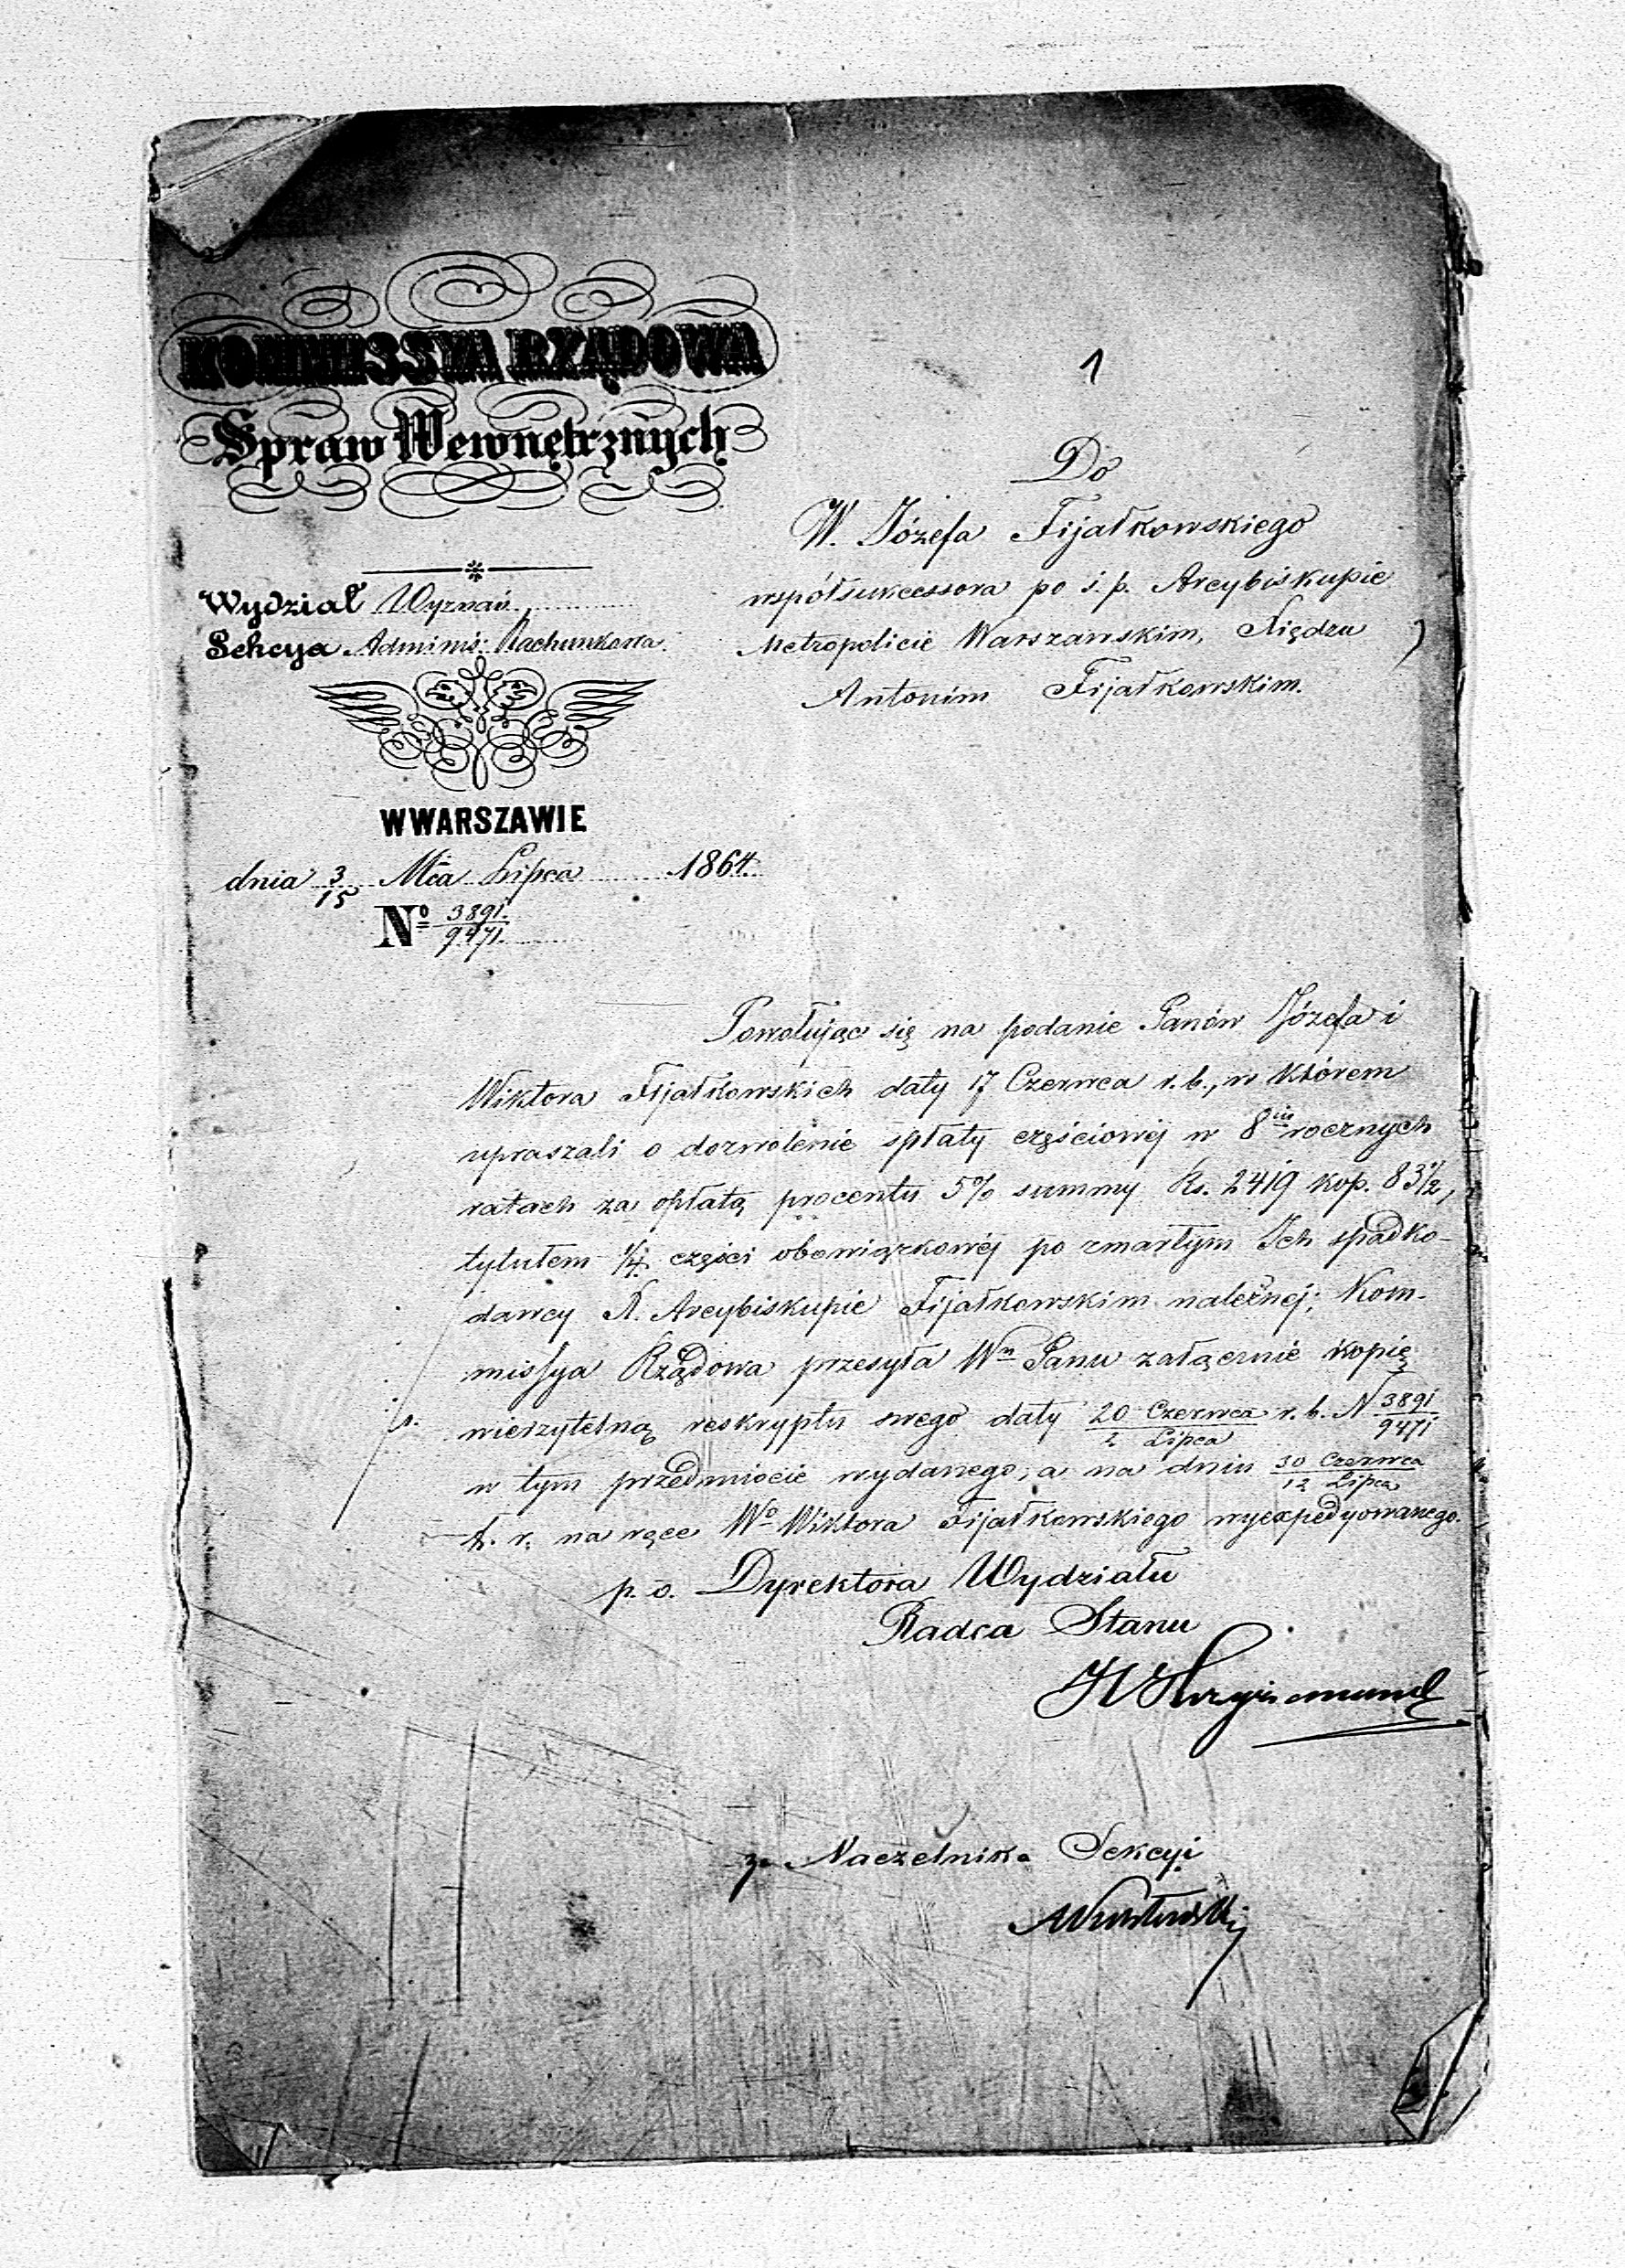 KOMMISSYA RZĄDOWA
Spraw Wewnętrznych
Wydział Wyznań
Sekcya Adminis. Rachunkowa.
W WARSZAWIE
dnia 3/15 Mca Lipca 1864.
No 3891./9471.
1
Do
W. Józefa Fijałkowskiego
współsukcessora po ś. p. Arcybiskupie
Metropolicie Warszawskim, Xiędzu
Antonim Fijałkowskim.
Powołując się na podanie Panów Józefa i
Wiktora Fijałkowskich daty 17 Czerwca r. b., w którem
upraszali o dozwolenie spłaty częściowéj w 8iu rocznych
ratach za opłatą procentu 5% summy Rs. 2419 kop. 83 1/2,
tytułem 1/4 części obowiązkowéj po zmarłym Ich spadko-
dawcy X. Arcybiskupie Fijałkowskim należnéj; Kom-
missya Rządowa przesyła Wn Panu załącznie kopię
wierzytelną reskryptu swego daty 20 Czerwca/2 Lipca r. b. N 3891/9471
w tym przedmiocie wydanego, a na dniu 30 Czerwca/12 Lipca
b. r. na ręce Wo Wiktora Fijałkowskiego wyexpedyowanego.
p. o. Dyrektora Wydziału
Radca Stanu
z. Naczelnika Sekcyi